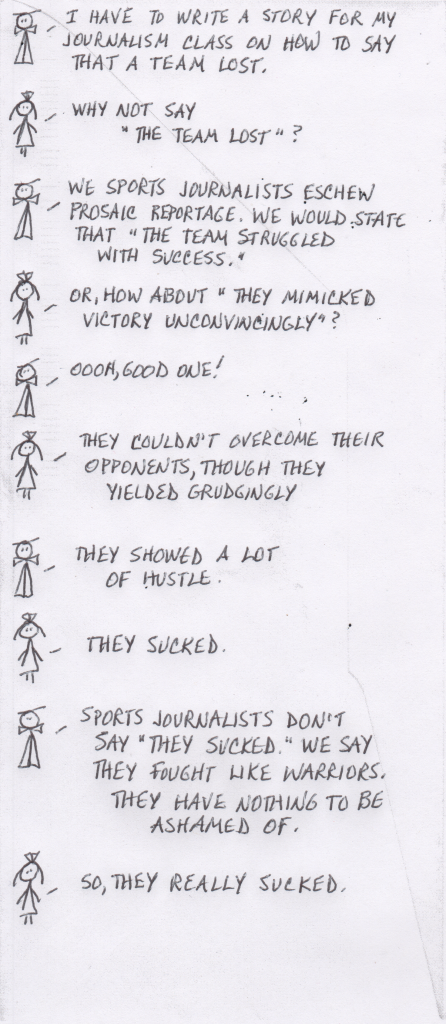 I HAVE TO WRITE A STORY FOR MY
JOURNALISM CLASS ON HOW TO SAY
THAT A TEAM LOST.
WHY NOT SAY
"THE TEAM LOST"?
WE SPORTS JOURNALISTS ESCHEW
PROSAIC REPORTAGE. WE WOULD STATE
THAT "THE TEAM STRUGGLED
WITH SUCCESS."
OR, HOW ABOUT "THEY MIMICKED
VICTORY UNCONVINCINGLY"?
OOOH, GOOD ONE!
THEY COULDN'T OVERCOME THEIR
OPPONENTS, THOUGH THEY
YIELDED GRUDGINGLY
THEY SHOWED A LOT
OF HUSTLE.
THEY SUCKED.
SPORTS JOURNALISTS DON'T
SAY "THEY SUCKED." WE SAY
THEY FOUGHT LIKE WARRIORS.
THEY HAVE NOTHING TO BE
ASHAMED OF.
SO, THEY REALLY SUCKED.